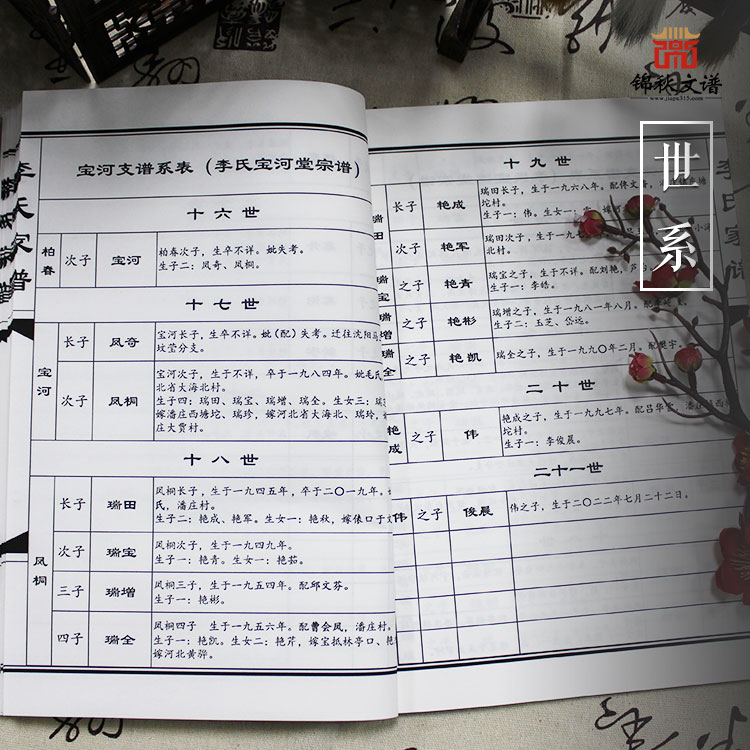 锦秋文谱
www.jiapu315.com
世系
李氏家谱
宝河支谱系表（李氏宝河堂宗谱）
十六世
柏春
次子
宝河
柏春次子，生卒不详。妣失考。
生子二：凤奇、凤桐。
十七世
宝河
长子
凤奇
宝河长子，生卒不详。妣（配）失考。迁往沈阳马
坟茔分支。
次子
凤桐
宝河次子，生于不详，卒于一九八四年。妣毛氏
北省大海北村。
生子四：瑞田、瑞宝、瑞增、瑞全。生女三：瑞
嫁潘庄西塘坨、瑞珍，嫁河北省大海北、瑞玲，嫁
庄大贾村。
十八世
凤桐
长子
瑞田
凤桐长子，生于一九四五年，卒于二〇一九年。
氏，潘庄村。
生子二：艳成、艳军。生女一：艳秋，嫁俵口于
次子
瑞宝
凤桐次子，生于一九四九年。
生子一：艳青。生女一：艳茹。
三子
瑞增
凤桐三子，生于一九五四年。配邱文芬。
生子一：艳彬。
四子
瑞全
凤桐四子 生于一九五六年。配曹会凤，潘庄村。
生子一：艳凯。生女二：艳芹，嫁宝坻林亭口、艳
嫁河北黄骅。
十九世
瑞田
长子
艳成
瑞田长子，生于一九六八年。配佟文香，
坨村。
生子一：伟。生女一：
次子
艳军
瑞田次子，生于一九
北村。
瑞宝
之子
艳青
瑞宝之子，生于不详。配刘艳，芦台
生子一：李皓。
瑞增
之子
艳彬
瑞增之子，生于一九八一年八月。配
生子二：玉芝、岱远。
瑞全
之子
艳凯
瑞全之子，生于一九九〇年二月。配樊宇。
二十世
艳成
之子
伟
艳成之子，生于一九九七年。配吕华
坨村。
生子一：李俊晨。
二十一世
伟
之子
俊晨
伟之子，生于二〇二二年七月二十二日。
李氏家谱